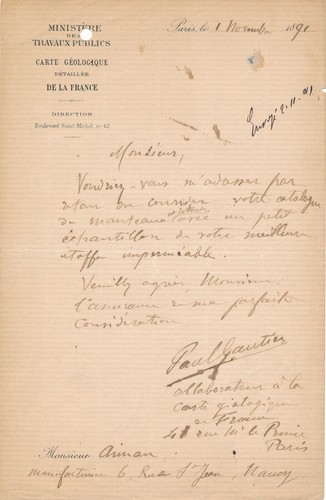 MINISTÈRE
DES
TRAVAUX PUBLICS
CARTE GÉOLOGIQUE
DÉTAILLÉE
DE LA FRANCE
DIRECTION
Boulevard Saint-Michel, nº 62
Paris, le 1 Novembre 1891
Envoyé 2-11-91
Monsieur,
Voudriez-vous m'adresser par
retour du courrier votre catalogue
de manteaux avec un petit
échantillon de votre meilleure
étoffe imperméable.
Veuillez agréer Monsieur
l'assurance de ma parfaite
considération
Paul Gautier
collaborateur à la
carte géologique
de France
rue Mr le Prince
Paris
Monsieur
manufacturier 6, Rue St Jean, Nancy